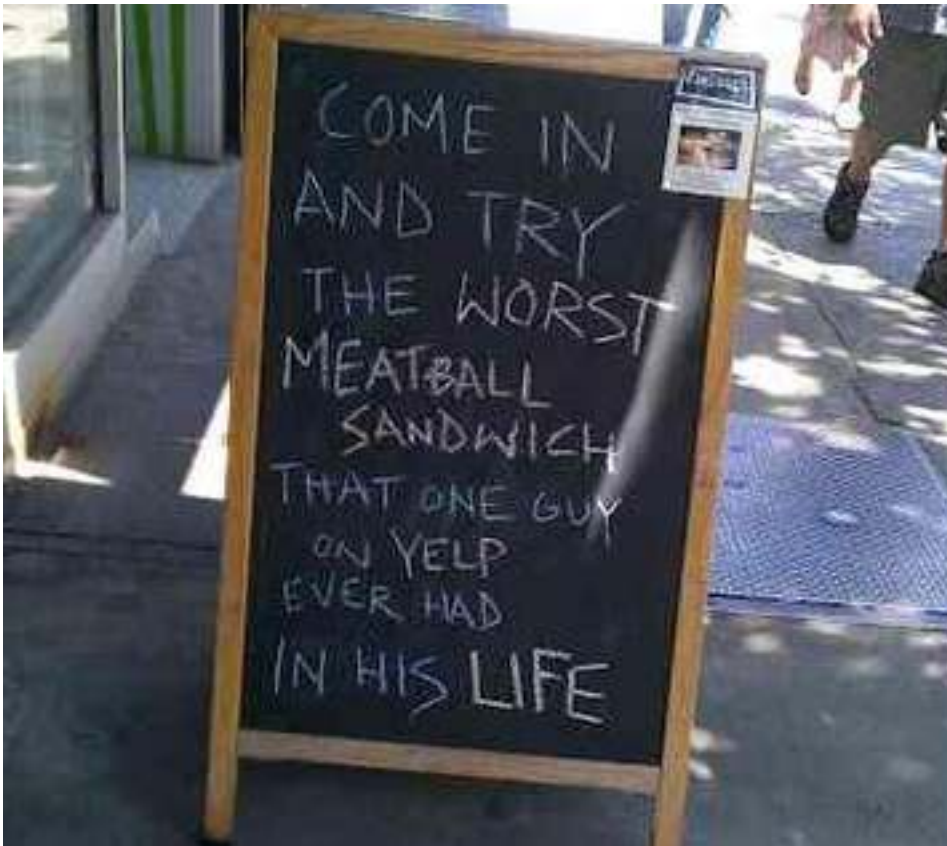 COME IN
AND TRY
THE WORST
MEATBALL
SANDWICH
THAT ONE GUY
ON YELP
EVER HAD
IN HIS LIFE